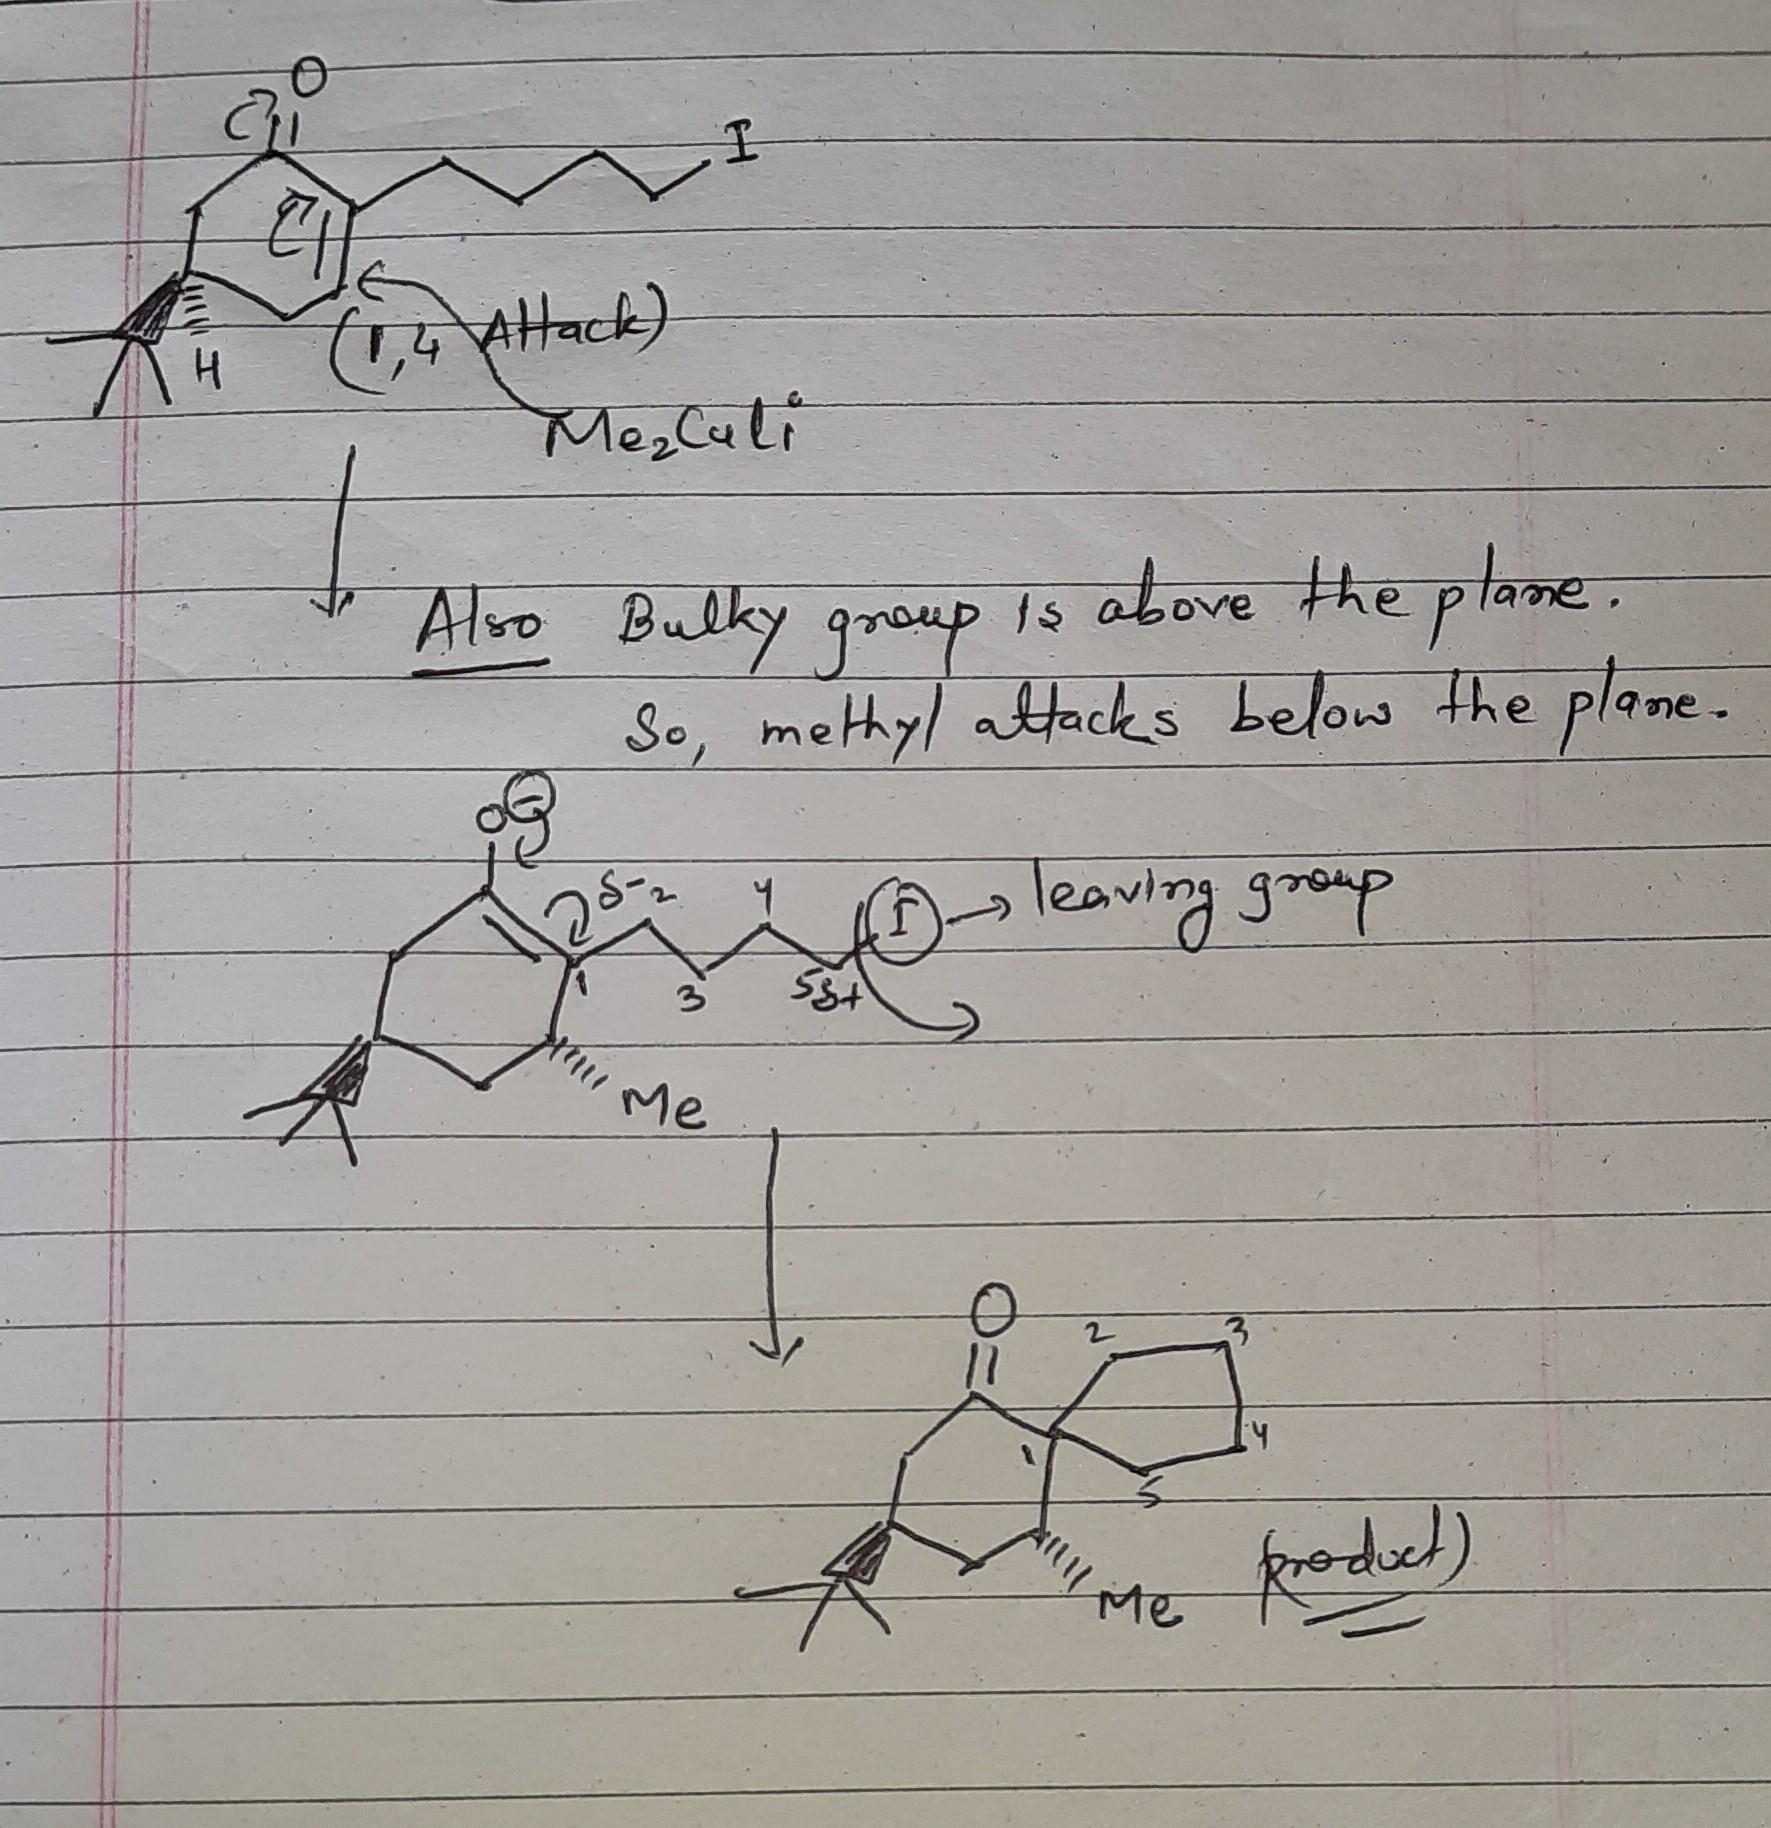 O
I
H
(1,4 Attack)
Me₂CuLi
Also Bulky group is above the plane.
So, methyl attacks below the plane.
O⊖
δ- 2 4 I → leaving group
1 3 5 δ+
Me
O
2 3
1 4
5
Me (product)